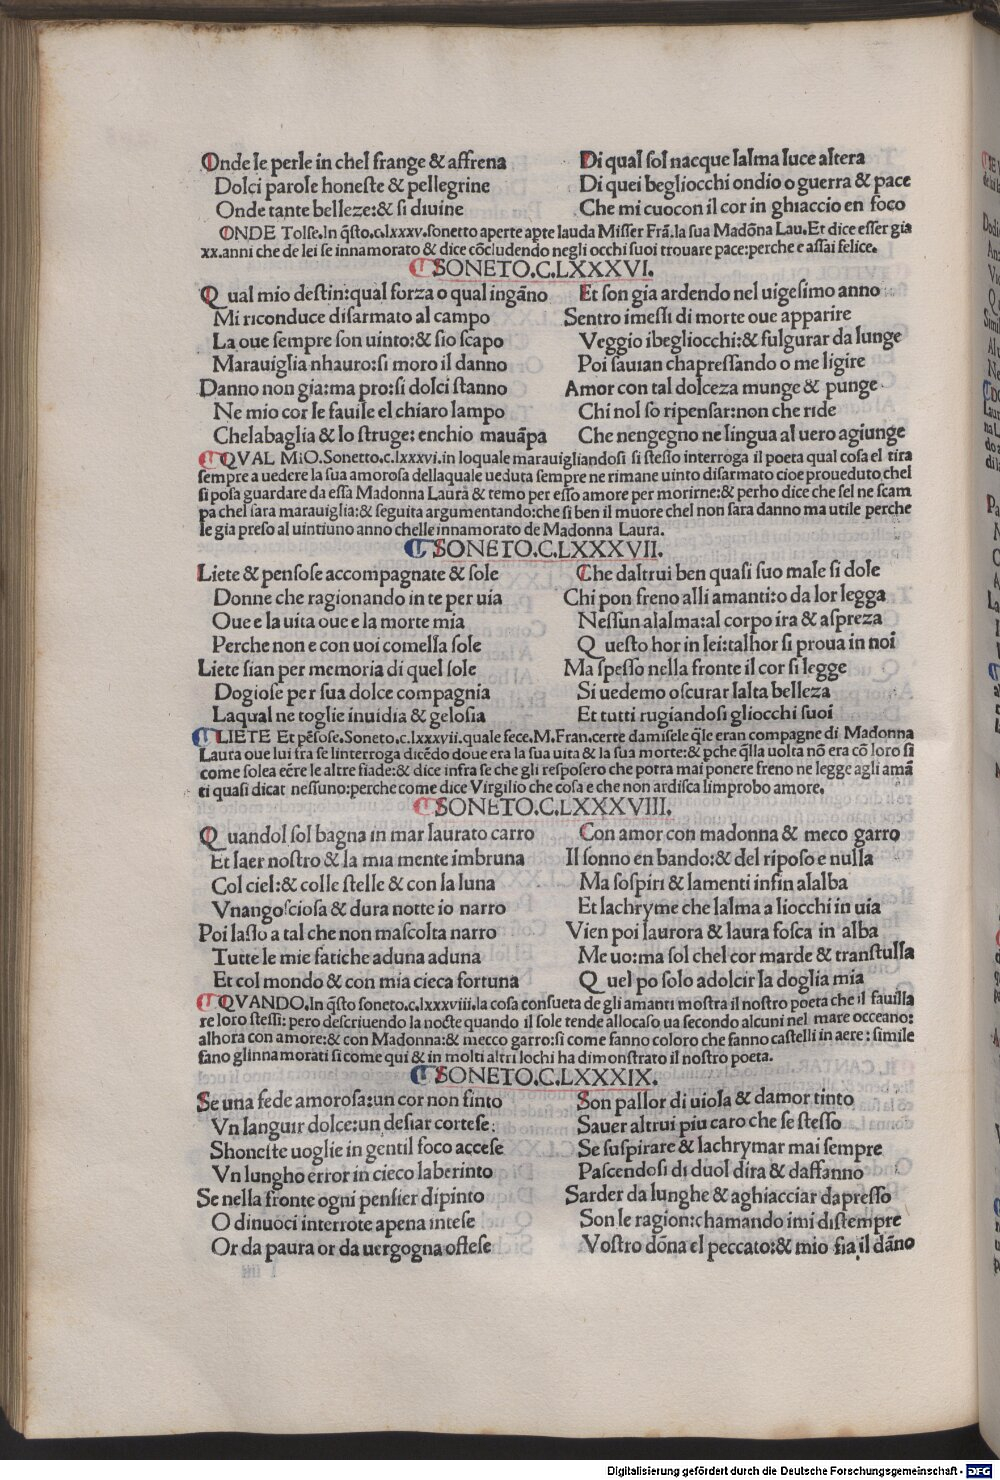 Onde le perle in chel frange & affrena
Dolci parole honeste & pellegrine
Onde tante belleze:& si diuine
Di qual sol nacque lalma luce altera
Di quei begliocchi ondio o guerra & pace
Che mi cuocon il cor in ghiaccio en foco
ONDE Tolse.In q̃sto.c.lxxxv.sonetto aperte apte lauda Misser Frã.la sua Madõna Lau.Et dice esser gia
xx.anni che de lei se innamorato & dice cõcludendo negli occhi suoi trouare pace:perche e assai felice.
SONETO.C.LXXXVI.
Qual mio destin:qual forza o qual ingãno
Mi riconduce disarmato al campo
La oue sempre son uinto:& sio scapo
Marauiglia nhauro:si moro il danno
Danno non gia:ma pro:si dolci stanno
Ne mio cor le fauile el chiaro lampo
Chelabaglia & lo struge: enchio mauãpa
Et son gia ardendo nel uigesimo anno
Sentro imessi di morte oue apparire
Veggio ibegliocchi:& fulgurar da lunge
Poi sauian chapressando o me ligire
Amor con tal dolceza munge & punge
Chi nol so ripensar:non che ride
Che nengegno ne lingua al uero agiunge
QVAL MIO.Sonetto.c.lxxxvi.in loquale marauigliandosi si stesso interroga il poeta qual cosa el tira
sempre a uedere la sua amorosa dellaquale ueduta sempre ne rimane uinto disarmato cioe proueduto chel
si posa guardare da essa Madonna Laura & temo per esso amore per morirne:& perho dice che sel ne scam
pa chel sara marauiglia:& seguita argumentando:che si ben il muore chel non sara danno ma utile perche
le gia preso al uintiuno anno chelle innamorato de Madonna Laura.
SONETO.C.LXXXVII.
Liete & pensose accompagnate & sole
Donne che ragionando in te per uia
Oue e la uita oue e la morte mia
Perche non e con uoi comella sole
Liete sian per memoria di quel sole
Dogiose per sua dolce compagnia
Laqual ne toglie inuidia & gelosia
Che daltrui ben quasi suo male si dole
Chi pon freno alli amanti:o da lor legga
Nessun alalma:al corpo ira & aspreza
Questo hor in lei:talhor si proua in noi
Ma spesso nella fronte il cor si legge
Si uedemo oscurar lalta belleza
Et tutti rugiandosi gliocchi suoi
LIETE Et pẽsose.Soneto.c.lxxxvii.quale fece.M.Fran.certe damisele q̃le eran compagne di Madonna
Laura oue lui fra se linterroga dicẽdo doue era la sua uita & la sua morte:& pche q̃lla uolta nõ era cõ loro si
come solea eẽre le altre fiade:& dice infra se che gli resposero che potra mai ponere freno ne legge agli amã
ti quasi dicat nessuno:perche come dice Virgilio che cosa e che non ardisca limprobo amore.
SONETO.C.LXXXVIII.
Quandol sol bagna in mar laurato carro
Et laer nostro & la mia mente imbruna
Col ciel:& colle stelle & con la luna
Vnangosciosa & dura notte io narro
Poi lasso a tal che non mascolta narro
Tutte le mie fatiche aduna aduna
Et col mondo & con mia cieca fortuna
Con amor con madonna & meco garro
Il sonno en bando:& del riposo e nulla
Ma sospiri & lamenti infin alalba
Et lachryme che lalma a liocchi in uia
Vien poi laurora & laura fosca in alba
Me uo:ma sol chel cor marde & transtulla
Quel po solo adolcir la doglia mia
QVANDO.In q̃sto soneto.c.lxxxviii.la cosa consueta de gli amanti mostra il nostro poeta che il fauilla
re loro stessi: pero descriuendo la nocte quando il sole tende allocaso ua secondo alcuni nel mare occeano:
alhora con amore:& con Madonna:& mecco garro:si come fanno coloro che fanno castelli in aere: simile
fano glinnamorati si come qui & in molti altri lochi ha dimonstrato il nostro poeta.
SONETO.C.LXXXIX.
Se una fede amorosa:un cor non finto
Vn languir dolce:un desiar cortese:
Shoneste uoglie in gentil foco accese
Vn lungho error in cieco laberinto
Se nella fronte ogni pensier dipinto
O dinuoci interrote apena intese
Or da paura or da uergogna offese
Son pallor di uiola & damor tinto
Sauer altrui piu caro che se stesso
Se suspirare & lachrymar mai sempre
Pascendosi di duol dira & daffanno
Sarder da lunghe & aghiacciar dapresso
Son le ragion:chamando imi distempre
Vostro dõna el peccato:& mio fia il dãno
Digitalisierung gefördert durch die Deutsche Forschungsgemeinschaft - DFG